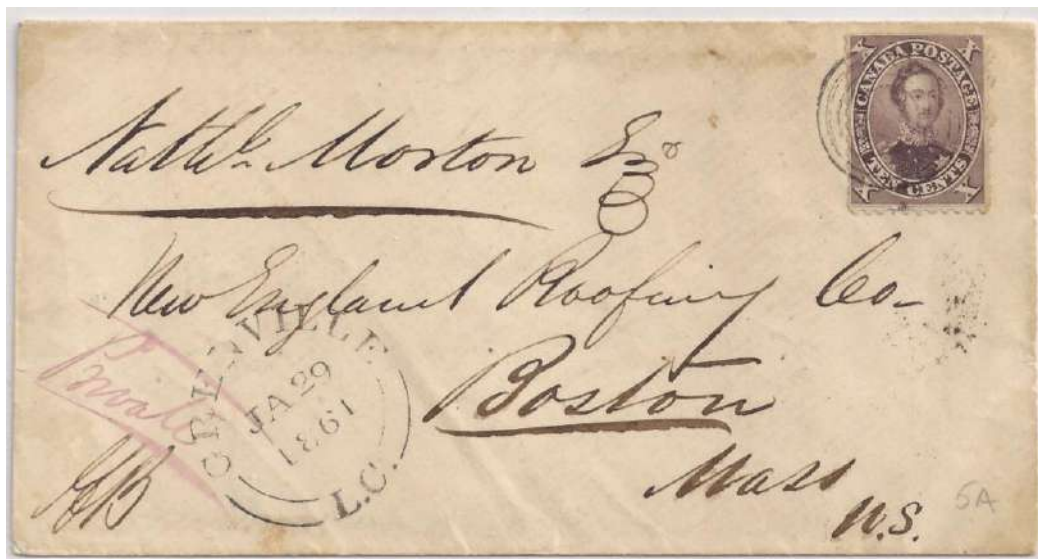 X CANADA POSTAGE X
X TEN CENTS X
Nathl. Morton Esqr
New England Roofing Co-
Boston
Mass
U.S.
Private
GRENVILLE
JA 29
1861
L.C.
5A